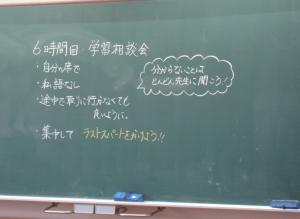 6時間目 学習相談会
・自分の席で
・私語なし
・途中で取りに行かなくても
良いように。
・集中して ラストスパートをかけよう!!
分からないことは
どんどん先生に聞こう!!